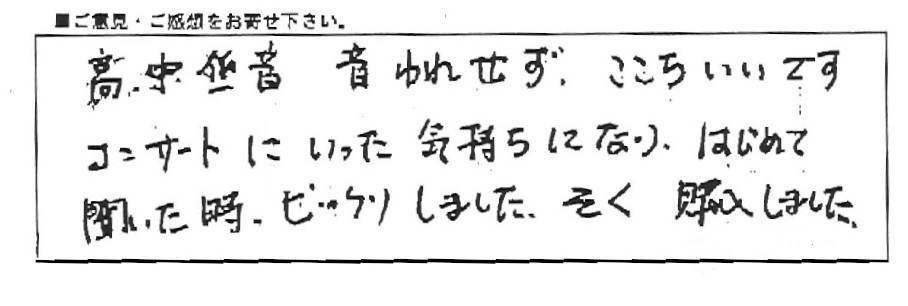 ■ご意見・ご感想をお寄せ下さい。
高、中低音 音われせず、ここちいいです
コンサートにいった気持ちになり、はじめて
聞いた時、ビックリしました、そく 購入しました。